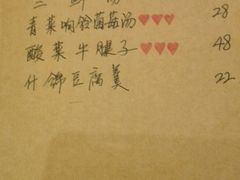 三鲜汤 28
青菜响铃菌菇汤♥♥♥
酸菜牛腱子♥♥♥ 48
什锦豆腐羹 22